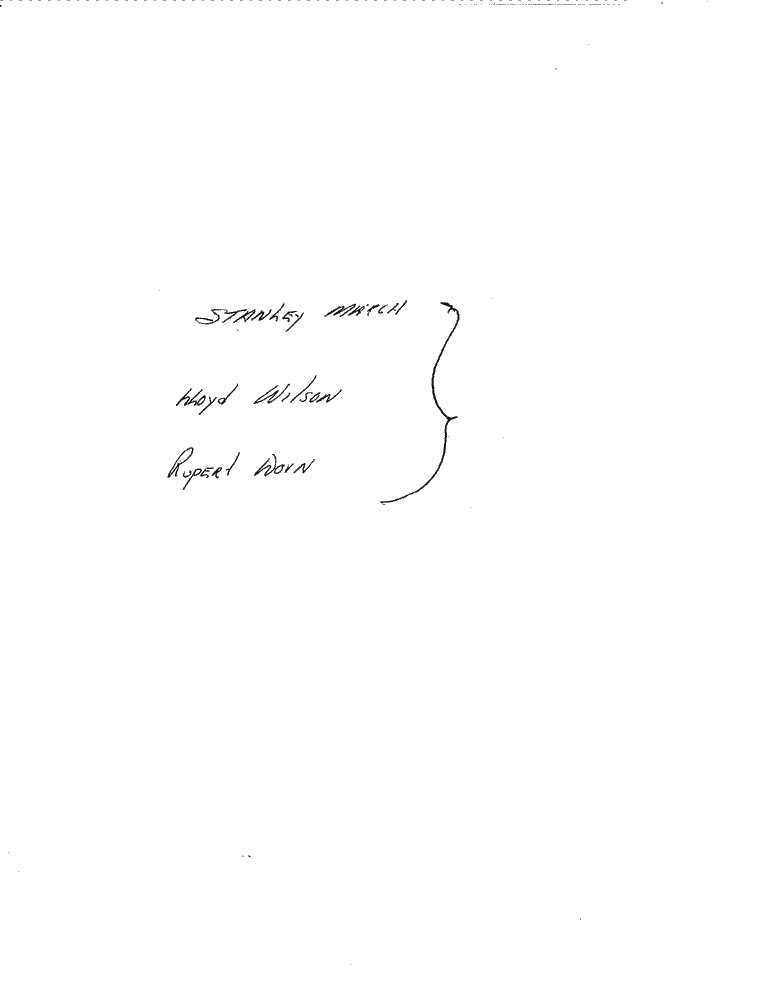 STANLEY MARCH
Lloyd Wilson
RUPERT